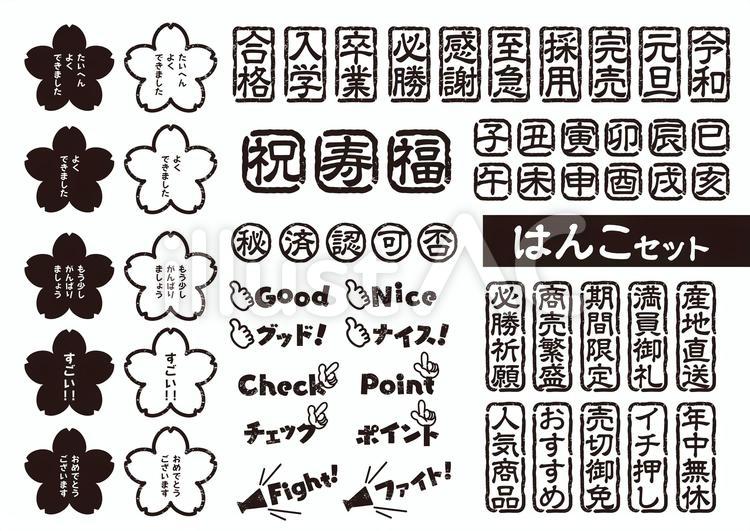 たいへん
よく
できました
たいへん
よく
できました
よく
できました
よく
できました
もう少し
がんばり
ましょう
もう少し
がんばり
ましょう
すごい!!
すごい!!
おめでとう
ございます
おめでとう
ございます
合格
入学
卒業
必勝
感謝
至急
採用
完売
元旦
令和
祝
寿
福
子
丑
寅
卯
辰
巳
午
未
申
酉
戌
亥
秘
済
認
可
否
はんこセット
Good
Nice
グッド!
ナイス!
Check
Point
チェック
ポイント
Fight!
ファイト!
必勝祈願
商売繁盛
期間限定
満員御礼
産地直送
人気商品
おすすめ
売切御免
イチ押し
年中無休
illust AC